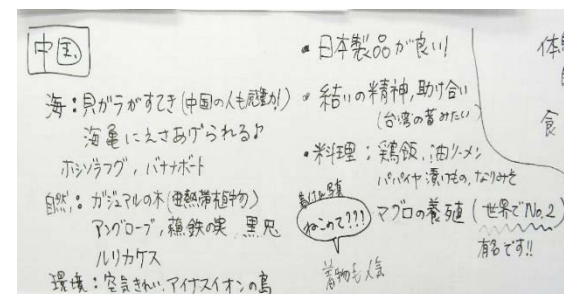 中国
海：貝ガラがすてき(中国の人も感動!)
海亀にえさあげられる♪
ホシゾラフグ，バナナボート
自然：ガジュマルの木(亜熱帯植物)
ングローブ，蘇鉄の実，黒兎
ルリカケス
環境：空気きれい，マイナスイオンの島
・日本製品が良い!
・結いの精神，助け合い
(台湾の昔みたい)
・料理：鶏飯，油ソーメン
パパイヤ漬けもの，なりみそ
ねこのて???
マグロの養殖(世界でNo.2)
有名です!!
着物も人気
食